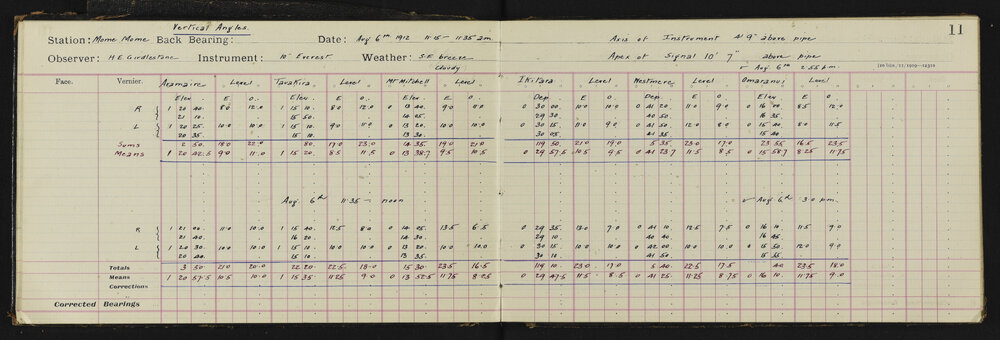 Vertical Angles. 11
Station: Mome Mome Back Bearing: Date: Aug 6th 1912 11·15 – 11·35 a.m. Axis of Instrument 4' 9" above pipe
Observer: H.E. Girdlestone Instrument: Everest Weather: S.E. breeze Cloudy Apex of Signal 10' 7" above pipe
Aug 6th 2·55 p.m.
Face. Vernier. Level Tavakira Level Mt Mitchell Level Ikitara Level Westmere Level Omaranui Level
Elev. E O. Elev. E O. Elev. E O. Dep. E O. Dep. E O. Elev. E O.
R 1 20 40. 8·0 12·0 1 15 10. 8·0 12·0 0 13 40. 9·0 0 30 00 10·0 10·0 0 41 20 11·0 9·0 0 16 00 8·5 12·0
21 10. 15 50. 14 05. 29 30 40 50 16 35
L 1 20 25. 10·0 10·0 1 15 10. 9·0 11·0 0 13 20. 10·0 10·0 0 30 15 11·0 9·0 0 41 50 12·0 8·0 0 15 40 8·0 11·5
20 35. 15 10. 13 30. 30 05 41 35 15 40
Sums 2 50 18·0 22·0 80 17·0 23·0 14 35 19·0 21·0 119 50 21·0 19·0 5 35 23·0 17·0 23 55 16·5 23·5
Means 1 20 42·5 9·0 11·0 1 15 20 8·5 11·5 0 13 38·7 9·5 10·5 0 29 57·5 10·5 9·5 0 41 23·7 11·5 8·5 0 15 58·7 8·25 11·75
Aug. 6th 11·35 – noon Aug 6th 3·0 p.m.
R 1 21 00 11·0 10·0 1 15 40 12·5 8·0 0 14 05 13·5 6·5 0 29 35 13·0 7·0 0 41 10 12·5 7·5 0 16 10 11·5 9·0
21 40 16 20 14 30 29 10 40 40 16 45
L 1 20 30 10·0 10·0 1 15 10 10·0 10·0 0 13 20 10·0 10·0 0 30 15 10·0 10·0 0 42 00 10·0 10·0 0 15 50 12·0 9·0
20 40 15 10 13 35 30 10 41 50 15 55
Totals 3 50 21·0 20·0 22 20 22·5 18·0 15 30 23·5 16·5 119 10 23·0 17·0 5 40 22·5 17·5 40 23·5 18·0
Means 1 20 57·5 10·5 10·0 1 15 35 11·25 9·0 0 13 52·5 11·75 8·25 0 29 47·5 11·5 8·5 0 41 25 11·25 8·75 0 16 10 11·75 9·0
Corrections
Corrected Bearings